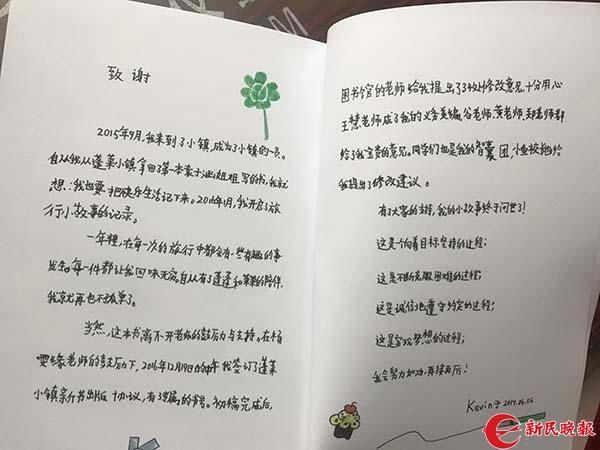 致谢
2015年9月,我来到了小镇,成为了小镇的一员。
自从我从蓬莱小镇拿回了第一本袁子涵姐姐写的书,我就
想:我也要把快乐生活记下来。2016年1月,我开启了旅
行小故事的记录。
一年里,在每一次的旅行中都会有一些有趣的事
发生。每一件都让我回味无穷。自从有了蓬蓬和莱莱的陪伴,
我就再也不孤单了。
当然,这本书离不开老师的鼓励与支持。在
缘老师的鼓励下,2016年12月19日的中午我签订了蓬莱
小镇亲斤书出版协议,有了专属的书号。初稿完成后,
图书馆的老师给我提出了3次修改意见十分用心
王慧老师成了我的义务美编,谷老师、黄老师、郑老师都
给了我宝贵的意见。同学们也是我的智囊团,小鱼校长给
我提出了修改建议。
有了大家的支持,我的小故事终于问世了!
这是个向着目标坚持的过程;
这是不断克服困难的过程;
这是诚信地遵守约定的过程;
这是实现梦想的过程;
我会努力加油,再接再厉!
Kevin于2017.06.06
新民晚报